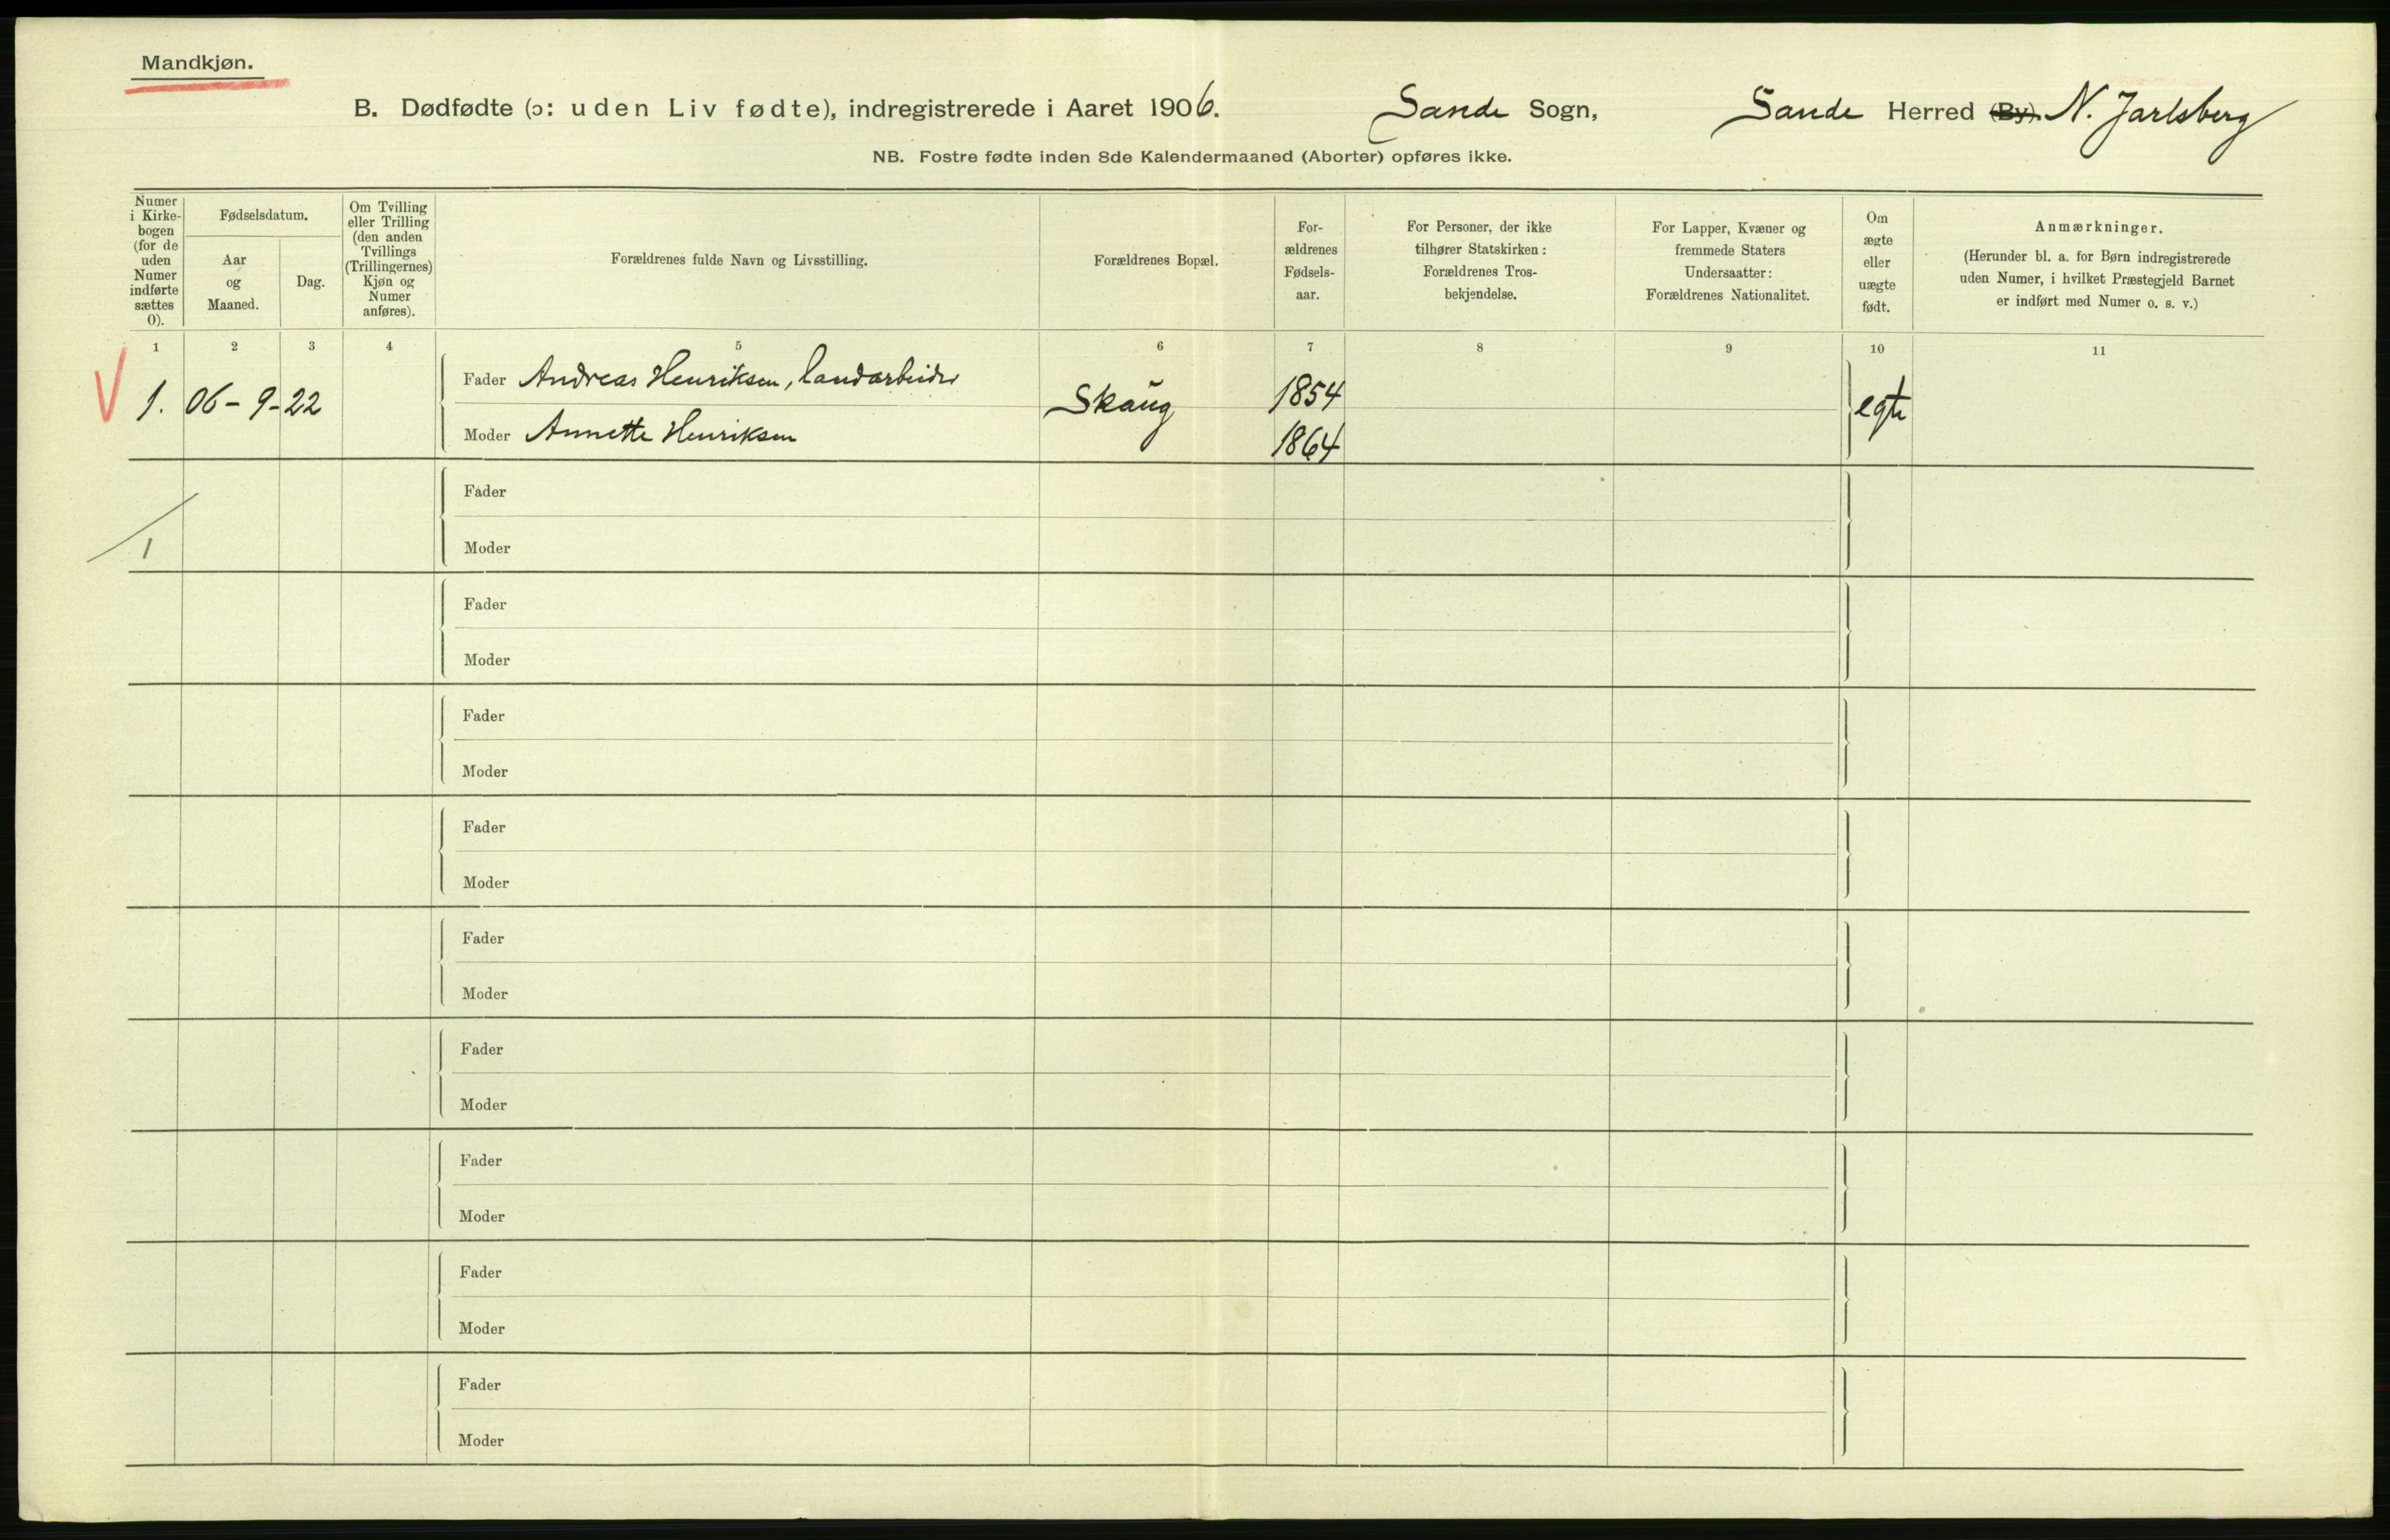 Mandkjøn.
B. Dødfødte (ɔ: uden Liv fødte), indregistrerede i Aaret 1906. Sande Sogn, Sande Herred (By). N. Jarlsberg
NB. Fostre fødte inden 8de Kalendermaaned (Aborter) opføres ikke.
Numer
i Kirke-
bogen
(for de
uden
Numer
indførte
sættes
0).
Fødselsdatum.
Aar
og
Maaned.
Dag.
Om Tvilling
eller Trilling
(den anden
Tvillings
(Trillingernes)
Kjøn og
Numer
anføres).
Forældrenes fulde Navn og Livsstilling.
Forældrenes Bopæl.
For-
ældrenes
Fødsels-
aar.
For Personer, der ikke
tilhører Statskirken:
Forældrenes Tros-
bekjendelse.
For Lapper, Kvæner og
fremmede Staters
Undersaatter:
Forældrenes Nationalitet.
Om
ægte
eller
uægte
født.
Anmærkninger.
(Herunder bl. a. for Børn indregistrerede
uden Numer, i hvilket Præstegjeld Barnet
er indført med Numer o. s. v.)
1 2 3 4 5 6 7 8 9 10 11
V 1. 06-9-22
Fader Andreas Henriksen, landarbeider
Skaug
1854
egte
Moder Annette Henriksen
1864
Fader
1
Moder
Fader
Moder
Fader
Moder
Fader
Moder
Fader
Moder
Fader
Moder
Fader
Moder
Fader
Moder
Fader
Moder